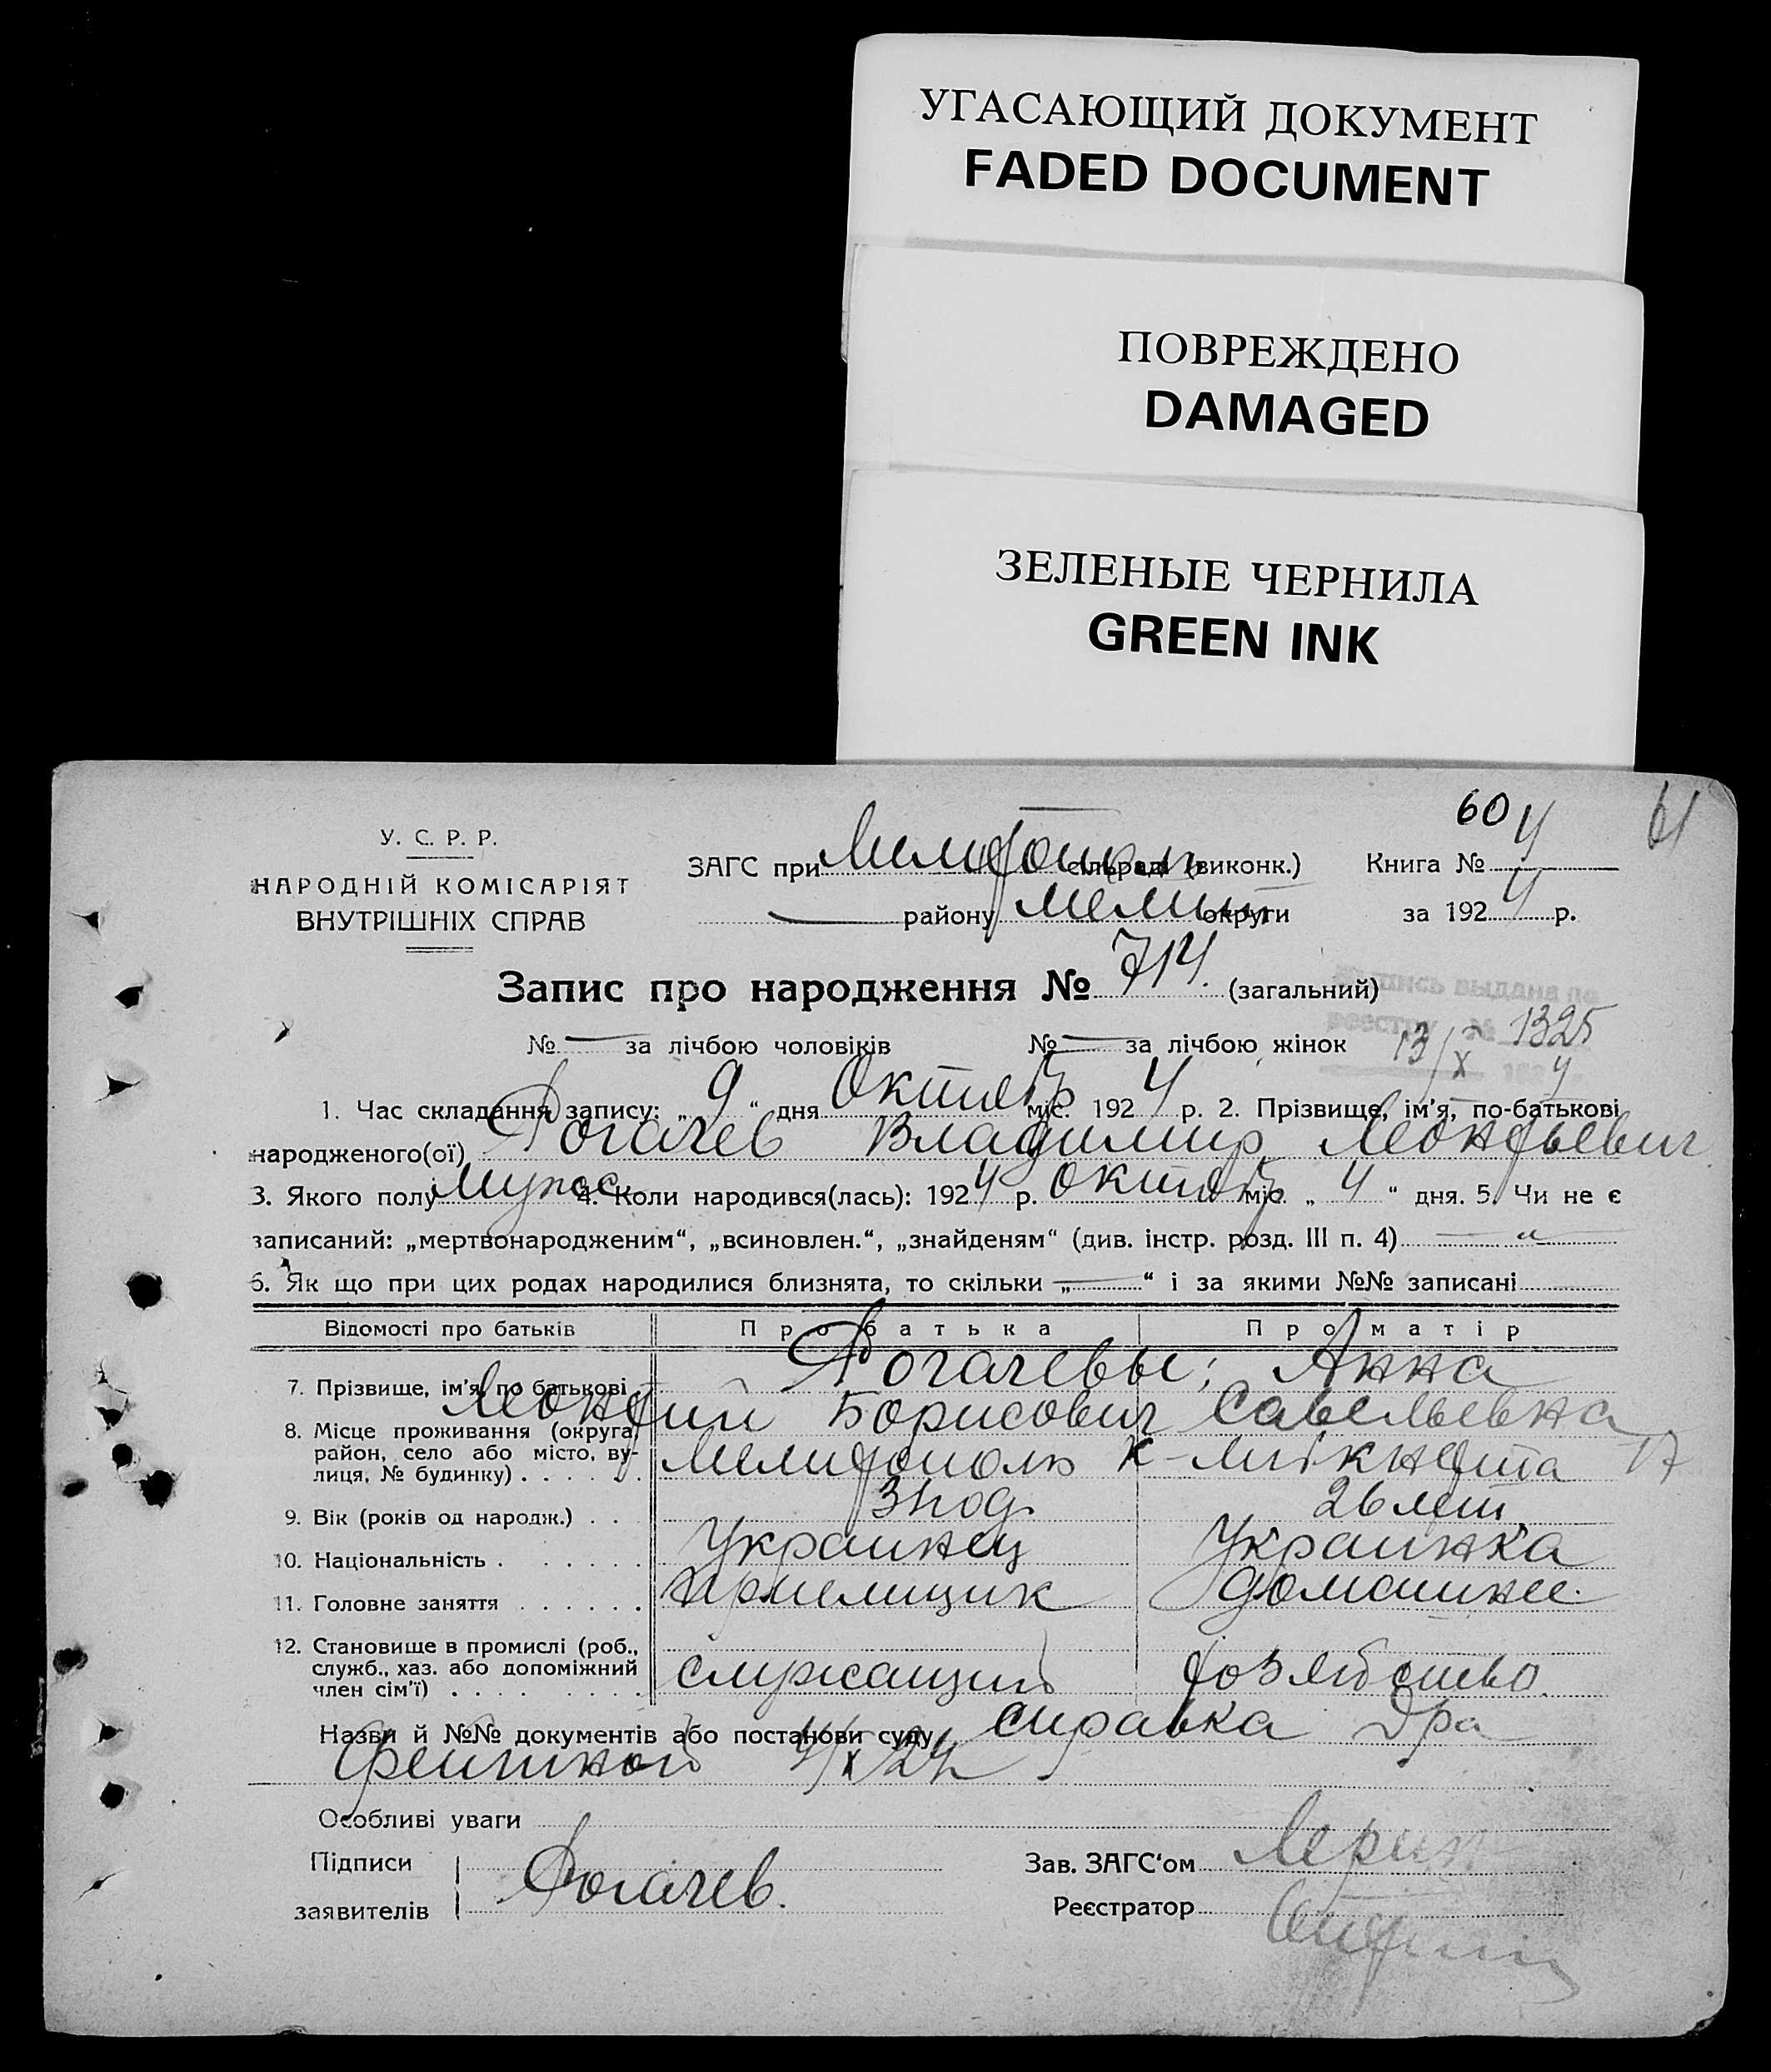 УГАСАЮЩИЙ ДОКУМЕНТ
FADED DOCUMENT
ПОВРЕЖДЕНО
DAMAGED
ЗЕЛЕНЫЕ ЧЕРНИЛА
GREEN INK
60 61
У. С. Р. Р.
НАРОДНІЙ КОМІСАРІЯТ
ВНУТРІШНІХ СПРАВ
ЗАГС при сільраді (виконк.) Книга № 4
району Мелит округи за 1924 р.
Запис про народження № 714. (загальний)
выдана по
реестру № 1325
№ — за лічбою чоловіків № — за лічбою жінок 13/X 4
1. Час складання запису: „ 9 “ дня Октяб міс. 1924 р. 2. Прізвище, ім'я, по-батькові
народженого(ої) Рогачев Владимир Леонтьевич
3. Якого полу Мужс 4. Коли народився(лась): 1924 р. октяб міс. „ 4 “ дня. 5. Чи не є
записаний: „мертвонародженим“, „всиновлен.“, „знайденям“ (див. інстр. розд. III п. 4) — „ —
6. Як що при цих родах народилися близнята, то скільки „ — “ і за якими №№ записані
Відомості про батьків Про батька Про матір
7. Прізвище, ім'я, по батькові Рогачевы; Анна
Леонтий Борисович Савельевна
8. Місце проживання (округа, район, село або місто, ву-
лиця, № будинку) Мелитополь К-Либкнехта 17
9. Вік (років од народж.) 31 год. 26 лет
10. Національність Украинец Украинка
11. Головне заняття домашнее
12. Становище в промислі (роб.,
служб., хаз. або допоміжний
член сім'ї) служащий хозяйство.
Назви й №№ документів або постанови суду справка Дра
4/X 24
Особливі уваги
Підписи
заявителів Рогачев.
Зав. ЗАГС'ом
Реєстратор